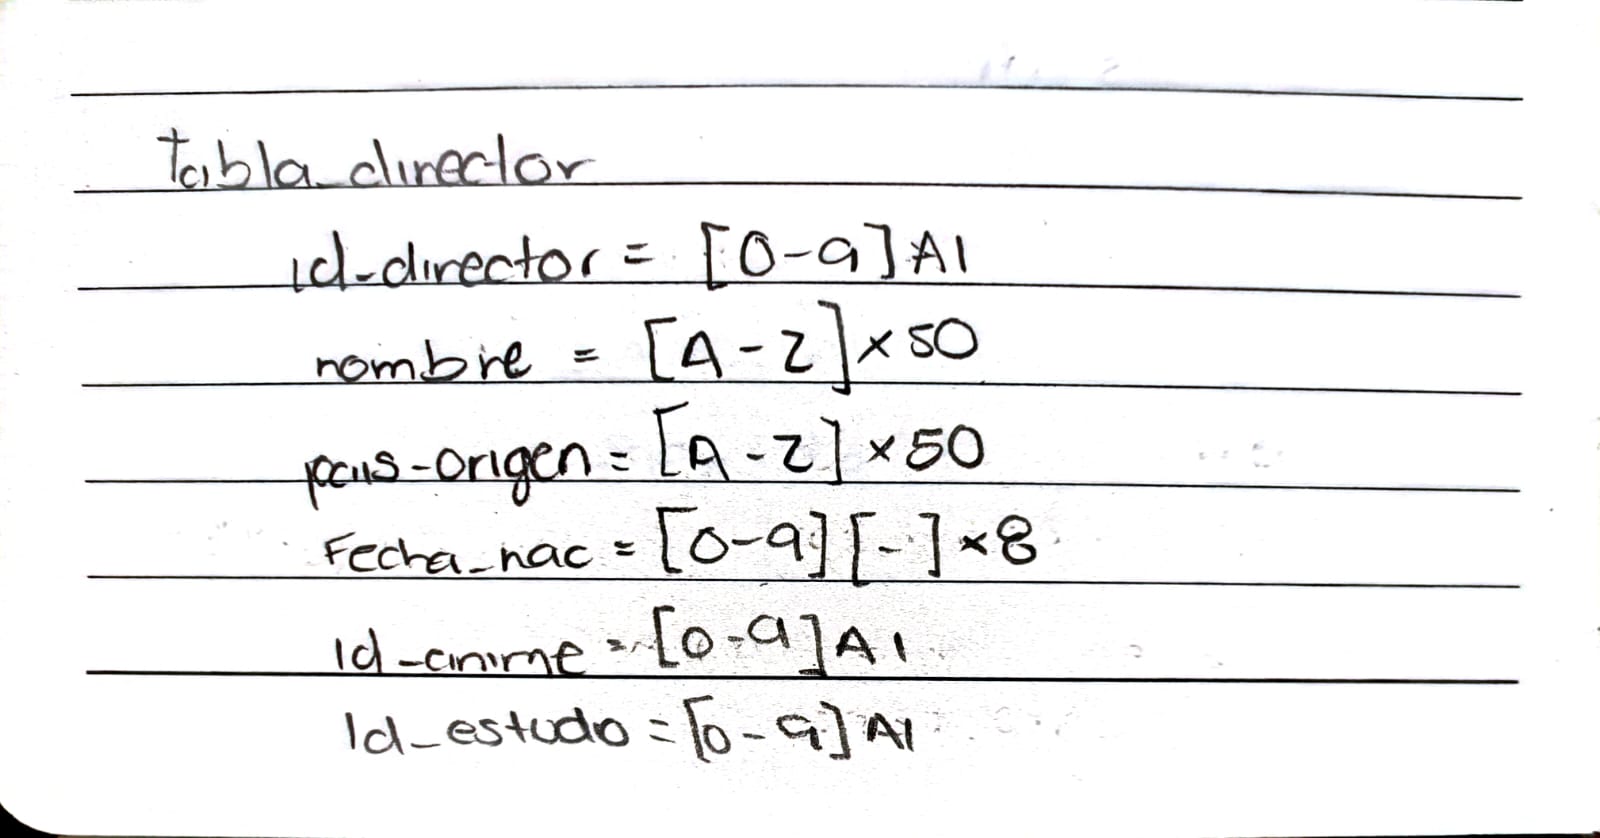 Tabla_director
id-director = [0-9] AI
nombre = [A-Z] x 50
pais-origen = [A-Z] x 50
Fecha_nac = [0-9] [-] x 8
Id-anime = [0-9] AI
Id_estudo = [0-9] AI